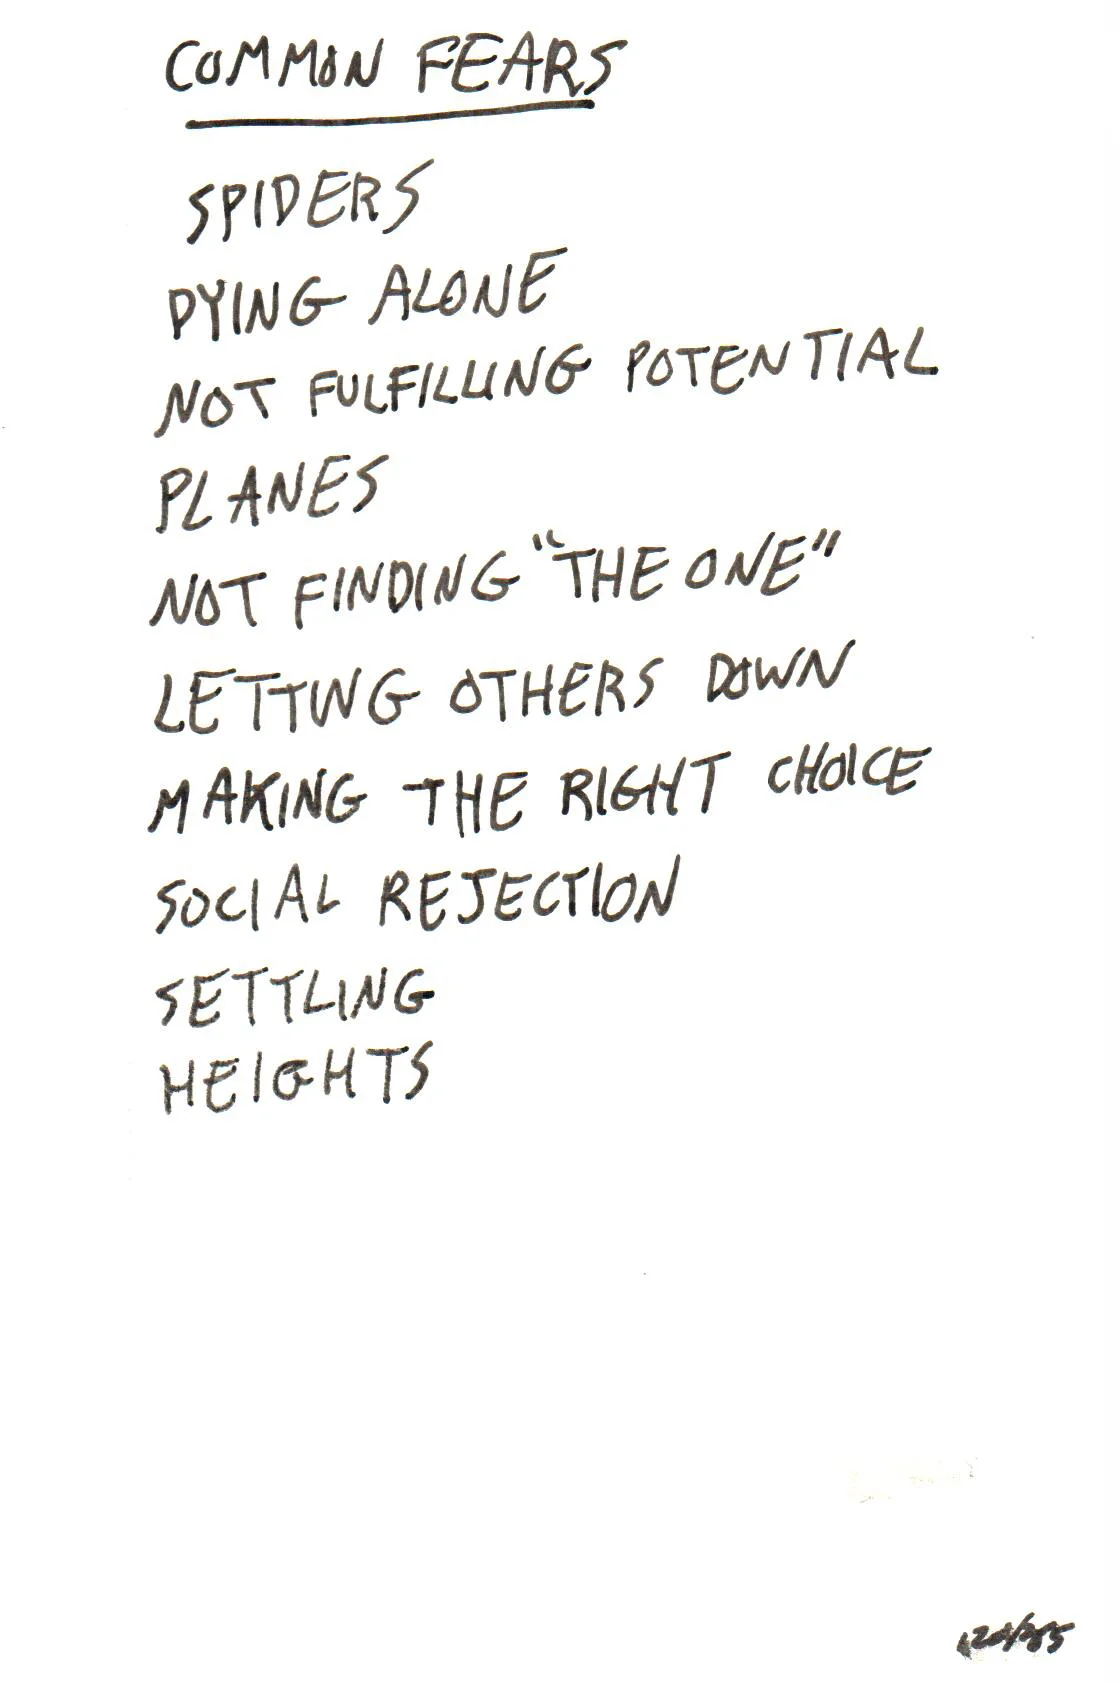 COMMON FEARS
SPIDERS
DYING ALONE
NOT FULFILLING POTENTIAL
PLANES
NOT FINDING "THE ONE"
LETTING OTHERS DOWN
MAKING THE RIGHT CHOICE
SOCIAL REJECTION
SETTLING
HEIGHTS